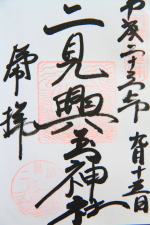 平成二十三年九月十三日
二見興玉神社
奉拝